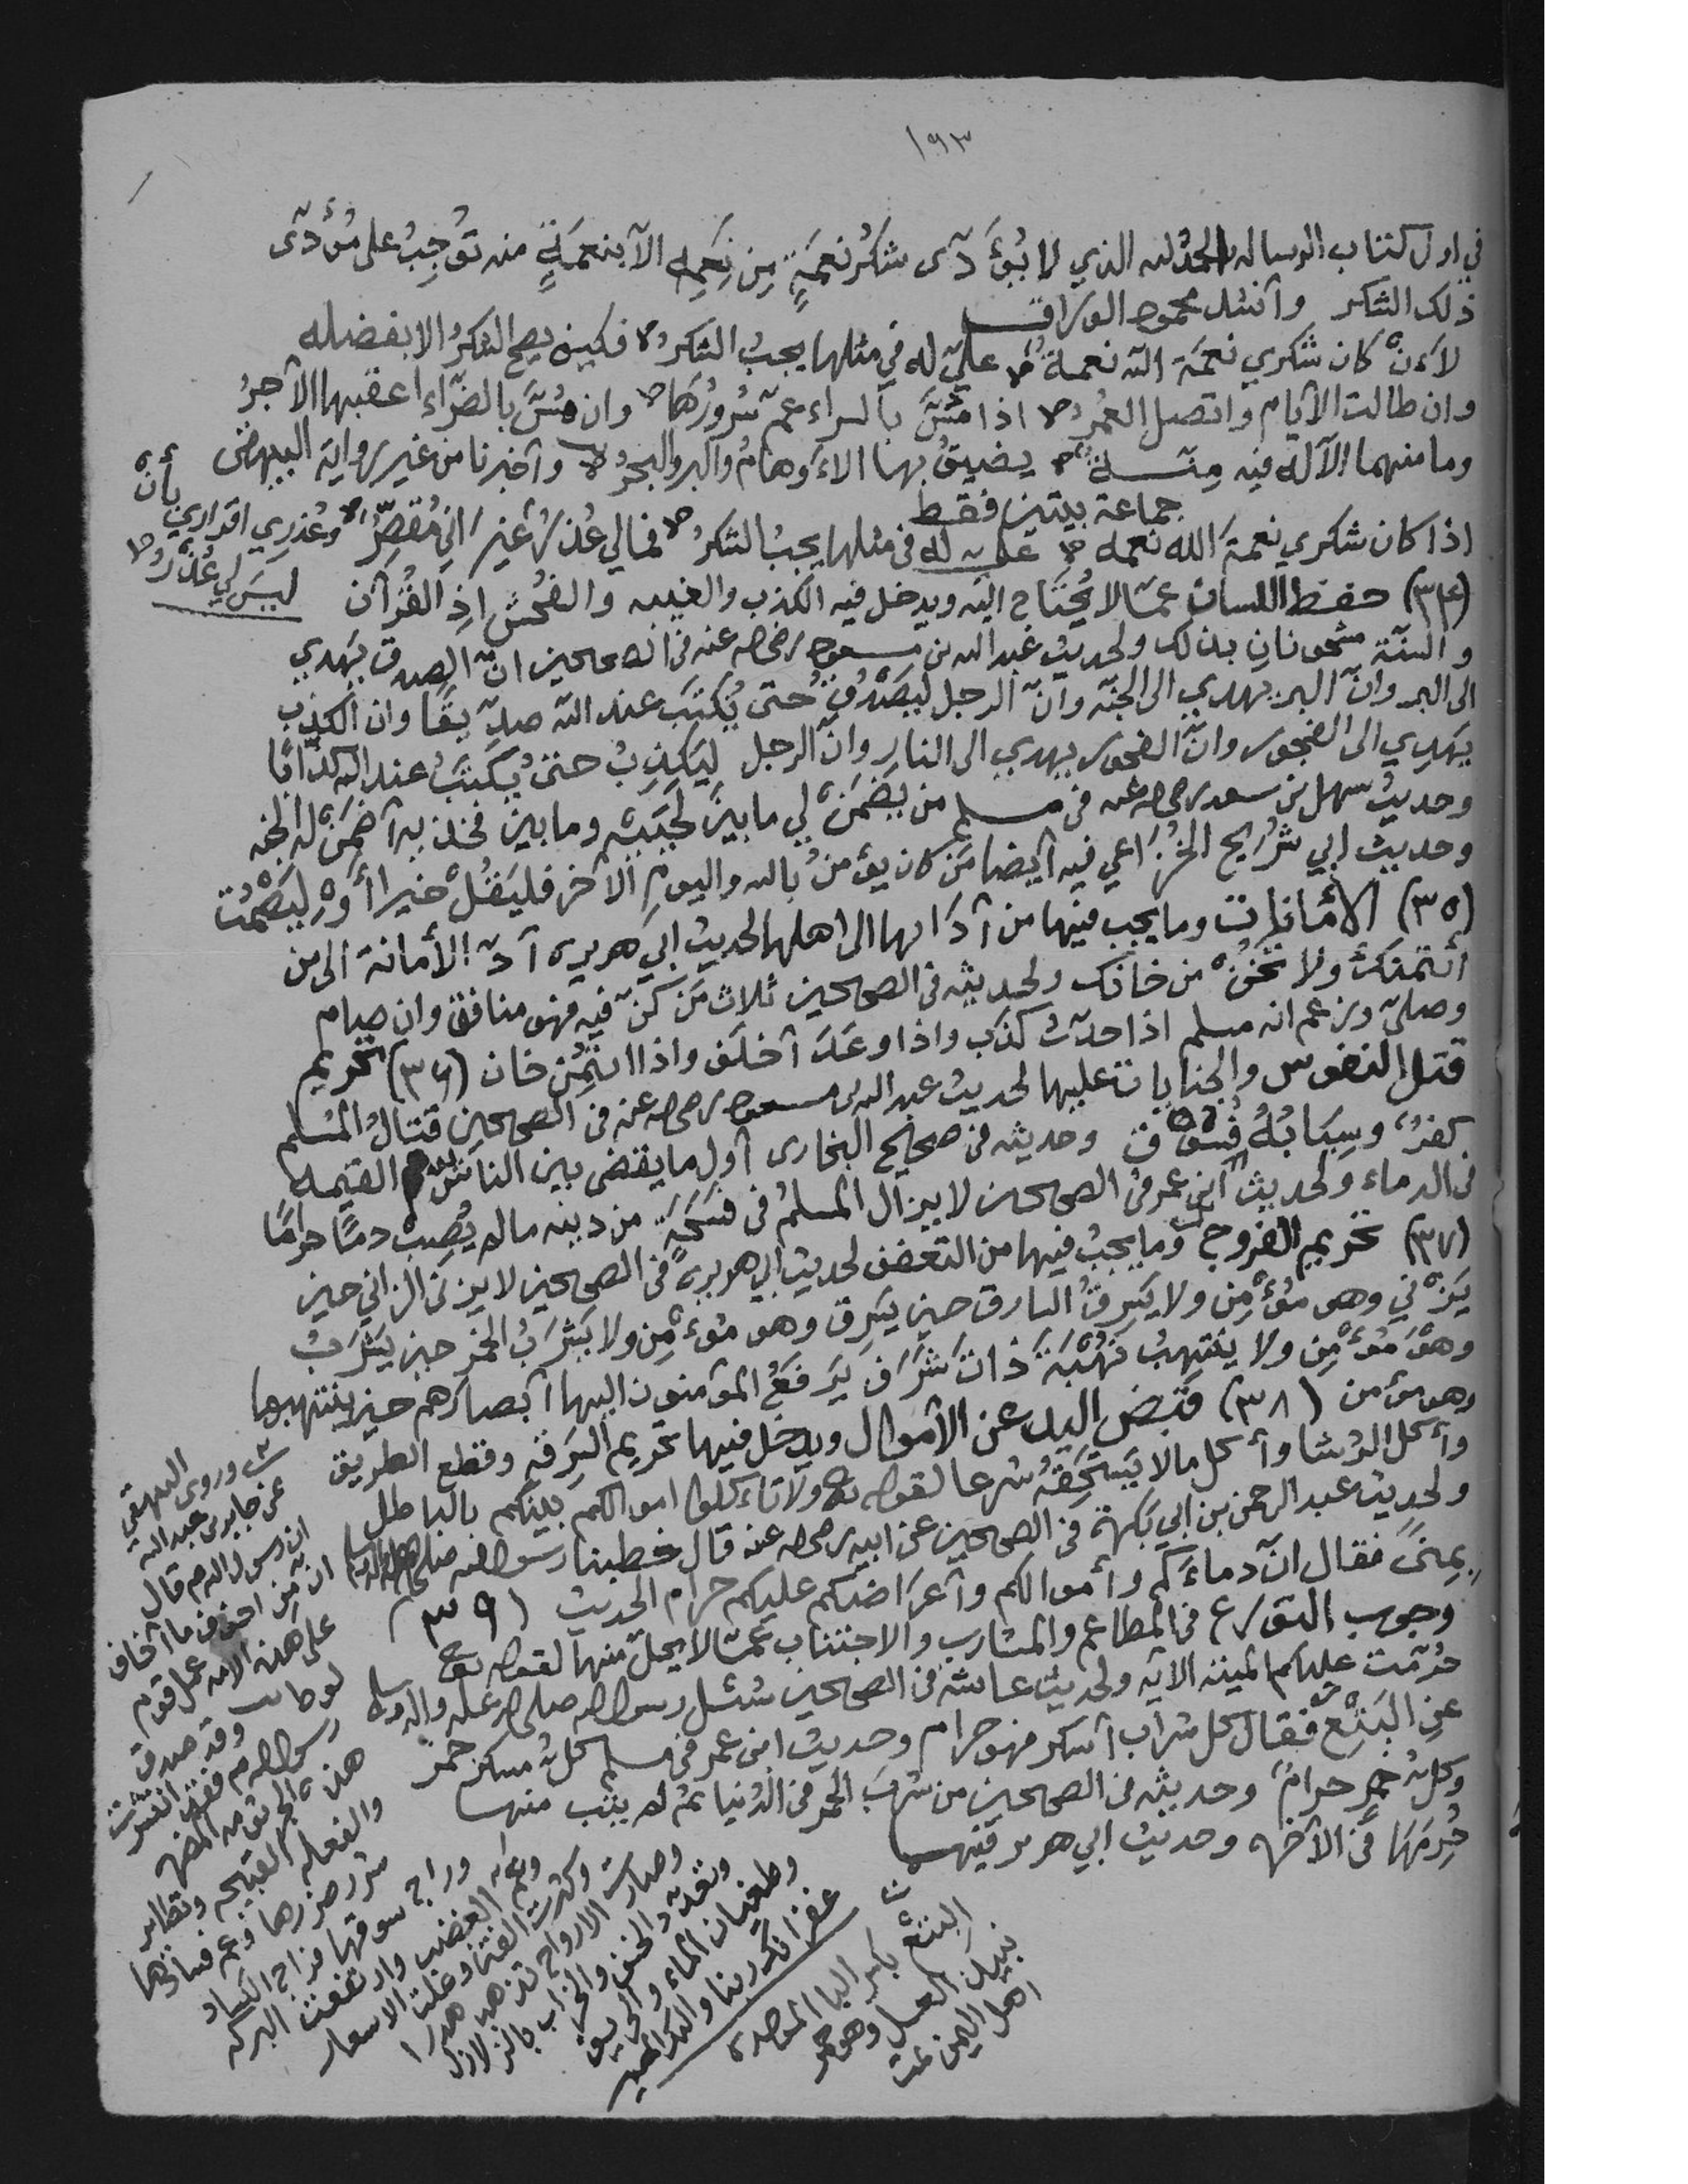 ١٩٣
في اول كتاب الرساله الحمد لله الذي لا يُؤَدّى شكرُ نعمَةٍ مِن نِعَمِه الا بنعمَةٍ منه تُوجِبُ على مُؤَدّى
ذلك الشكر وانشد محمود الوراق
لاءن كان شكري نعمَة الله نعمةٌ عليّ له في مثلها يجبُ الشكرُ فكيف يصح الشكرُ الا بفضله
وان طالت الايام واتصل العُمرُ اذا مَسَّ بالسراء عمّ سُرورُها وان مَسَّ بالضرّاء اعقبها الاجرُ
وما منهما الا له فيه مِنّةٌ يضيقُ بها الاءوهامُ والبر والبحرُ واخبرنا من غير رواية البيهقى
جماعة بيتين فقط
اذا كان شكري نعمةَ الله نعمه عليه له فى مثلها يجبُ الشكرُ فمالي عُذرٌ غير انى مُقصِّرٌ وعُذري اقراري بأنْ
ليسَ لي عُذْرُ
(٣٤) حفظ اللسان عمّا لا يُحتاج اليه ويدخل فيه الكذب والغيبه والفُحش اذِ القُرآن
والسنّة مشحونانِ بذلك ولحديث عبد الله بن مسعود رضى الله عنه فى الصحيحين انّ الصدق يَهدي
الى البر وانّ البر يهدي الى الجنّه وانّ الرجل ليَصْدُقُ حتى يُكتَبَ عند الله صدّيقًا وان الكذب
يَهدِي الى الفجور وانّ الفجور يهدي الى النار وانّ الرجل ليَكذِبُ حتى يُكتَبُ عند الله كذّابًا
وحديثُ سهل بن سعد رضى الله عنه فى مسلم من يَضمَنْ لي ما بينَ لَحيَيْه وما بينَ فخذيه اضمَنْ له الجنه
وحديث ابي شُرَيح الخُزَاعي فيه ايضا مَن كان يؤمنُ بالله واليومِ الآخر فليَقُلْ خيرا أَوْ لِيَصْمُت
(٣٥) الأمانات وما يجب فيها من أدَائها الى اهلها لحديث ابي هريره أدّ الأمانة الى من
أئتمنكَ ولا تَخُنْ من خانك ولحديثه فى الصحيحين ثلاث مَن كنّ فيه فهو منافق وان صام
وصلى وزعم انه مسلم اذا حدّث كذب واذا وعَد أخلَف واذا ائتُمِن خان (٣٦) تحريم
قتل النفوس والجنايات عليها لحديث عبد الله بن مسعود رضى الله عنه فى الصحيحين قتالُ المُسلم
كفرٌ وسِبَابُهُ فُسُوق وحديثه فى صحيح البخارى أول ما يقضى بين الناس يوم القيمه
فى الدماء ولحديث ابن عمر فى الصحيحين لا يزال المسلمُ فى فُسحَةٍ من دينه ما لم يُصِبْ دمًا حرامًا
(٣٧) تحريم الفروج وما يجبُ فيها من التعفف لحديث ابي هريرةَ فى الصحيحين لا يزنى الزاني حين
يَزْني وهو مُؤْمِن ولا يَسرِقُ السارق حين يَسرِق وهو مُوءْمِن ولا يَشرَبُ الخمر حين يَشرَبُ
وهُوَ مُؤْمِن ولا ينتهبُ نُهْبَةً ذاتَ شَرَف يَرفَعُ المؤمنون اليها أبصارَهم حين ينتهبها
وهو مؤمن (٣٨) قبض اليد عن الأموال ويدخل فيها تحريم السَرقه وقطع الطريق
وأكل الرُشا وأكل ما لا يَستَحِقّهُ شرعا لقوله تعالى ولا تأكلوا اموالكم بينكم بالباطل
ولحديث عبد الرحمن بن ابي بكرة فى الصحيحين عن ابيه رضى الله عنه قال خطبنا رسول الله صلى الله عليه واله وسلم
بِمِنًى فقال انّ دماءَكم وأموالكم وأعرَاضَكم عليكم حرام الحديث (٣٩)
وجوب التورع فى المطاعم والمشارب والاجتناب عمّا لا يحلّ منها لقوله تعالى
حُرّمت عليكم الميته الآيه ولحديث عائشه فى الصحيحين سُئل رسول الله صلى الله عليه واله وسلم
عنِ البِتْع فقال كل شراب أسكر فهو حرام وحديث ابن عمر فى مسلم كلُ مسكر خمرٌ
وكلُ خمرٍ حرامٌ وحديثه فى الصحيحين من شربَ الخمر فى الدُنيا ثم لم يتُب منها
حُرِمَهَا فى الآخره وحديث ابي هريره فيهما
وروى البيهقي
عن جابر بن عبد الله
ان رسول الله صم قال
ان من اخوف ما أخاف
على هذه الامه عمل قوم
لوط وقد صدق
رسول الله صم فقد انتشرت
هذه
والفعله القبيحه وتطاير
شررُ ضررها وعم فسادها
وراج سوقها
وعم الغضب وارتفعت البركه
وكثرت الفتن وغلت الاسعار
وصارت الارواح تذهب هدرا
والخسف والخراب بالزلازل
وطغيان الماء والحريق
غفرانك ربنا واليك المصير
البتع بكسر الباء الموحده
نبيذ العسل وهو خمر
اهل اليمن تمت